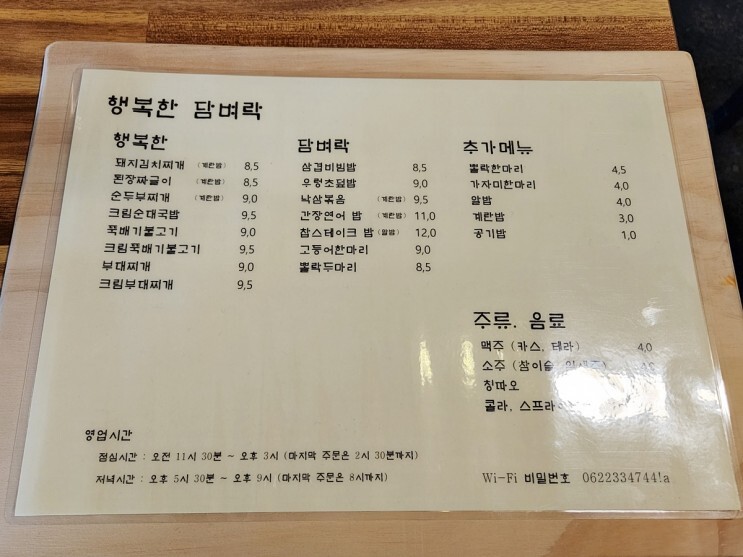 행복한 담벼락
행복한
돼지김치찌개 (계란밥) 8,5
된장짜글이 (계란밥) 8,5
순두부찌개 (계란밥) 9,0
크림순대국밥 9,5
뚝배기불고기 9,0
크림뚝배기불고기 9,5
부대찌개 9,0
크림부대찌개 9,5
담벼락
삼겹비빔밥 8,5
우렁초덮밥 9,0
낙삼볶음 (계란밥) 9,5
간장연어 밥 (계란밥) 11,0
찹스테이크 밥 (알밥) 12,0
고등어한마리 9,0
뽈락두마리 8,5
추가메뉴
뽈락한마리 4,5
가자미한마리 4,0
알밥 4,0
계란밥 3,0
공기밥 1,0
주류. 음료
맥주 (카스, 테라) 4,0
소주 (참이슬,
칭따오
콜라. 스프라이
영업시간
점심시간 : 오전 11시 30분 ~ 오후 3시 (마지막 주문은 2시 30분까지)
저녁시간 : 오후 5시 30분 ~ 오후 9시 (마지막 주문은 8시까지)
Wi-Fi 비밀번호 0622334744!a